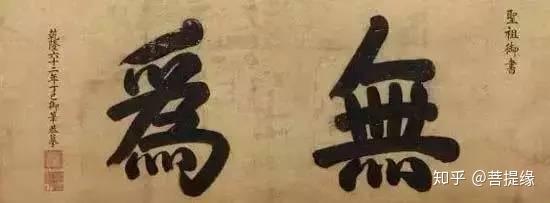 聖祖御書
無爲
乾隆六十二年丁巳御筆恭摹
知乎 @菩提缘